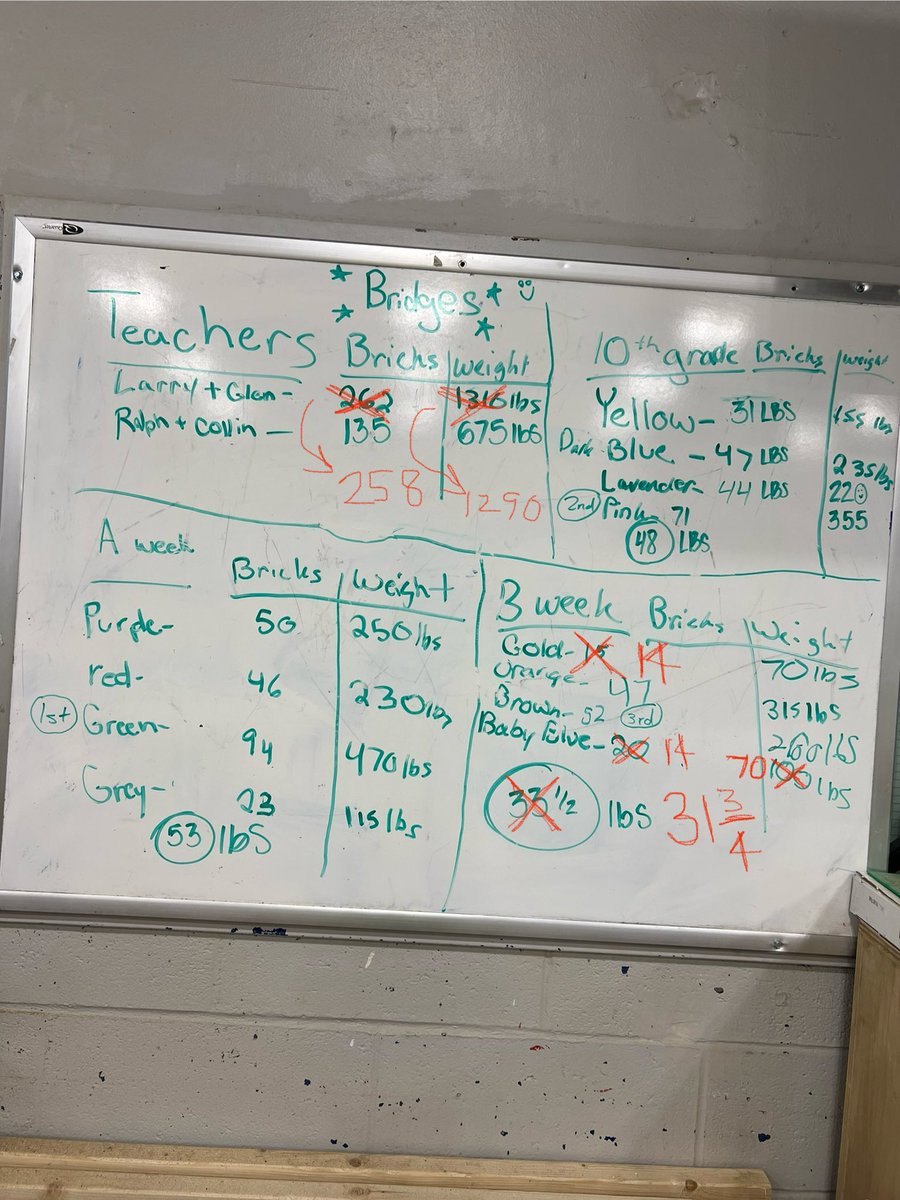 Bridges
Teachers Bricks weight
Larry + Glan - 262 1316 lbs
Ralph + Collin - 135 675 lbs
258 1290
10th grade Bricks weight
Yellow - 31 LBS 155 lbs
Dark Blue - 47 LBS 235 lbs
Lavender - 44 LBS 220
2nd Pink - 71 355
48 LBS
A week Bricks Weight
Purple - 50 250 lbs
red - 46 230 lbs
1st Green - 94 470 lbs
Grey - 23 115 lbs
53 lbs
B week Bricks Weight
Gold - 15 14 70 lbs
Orange - 47 315 lbs
Brown - 52 3rd 260 lbs
Baby Blue - 20 14 70 100 lbs
33 1/2 lbs 31 3/4